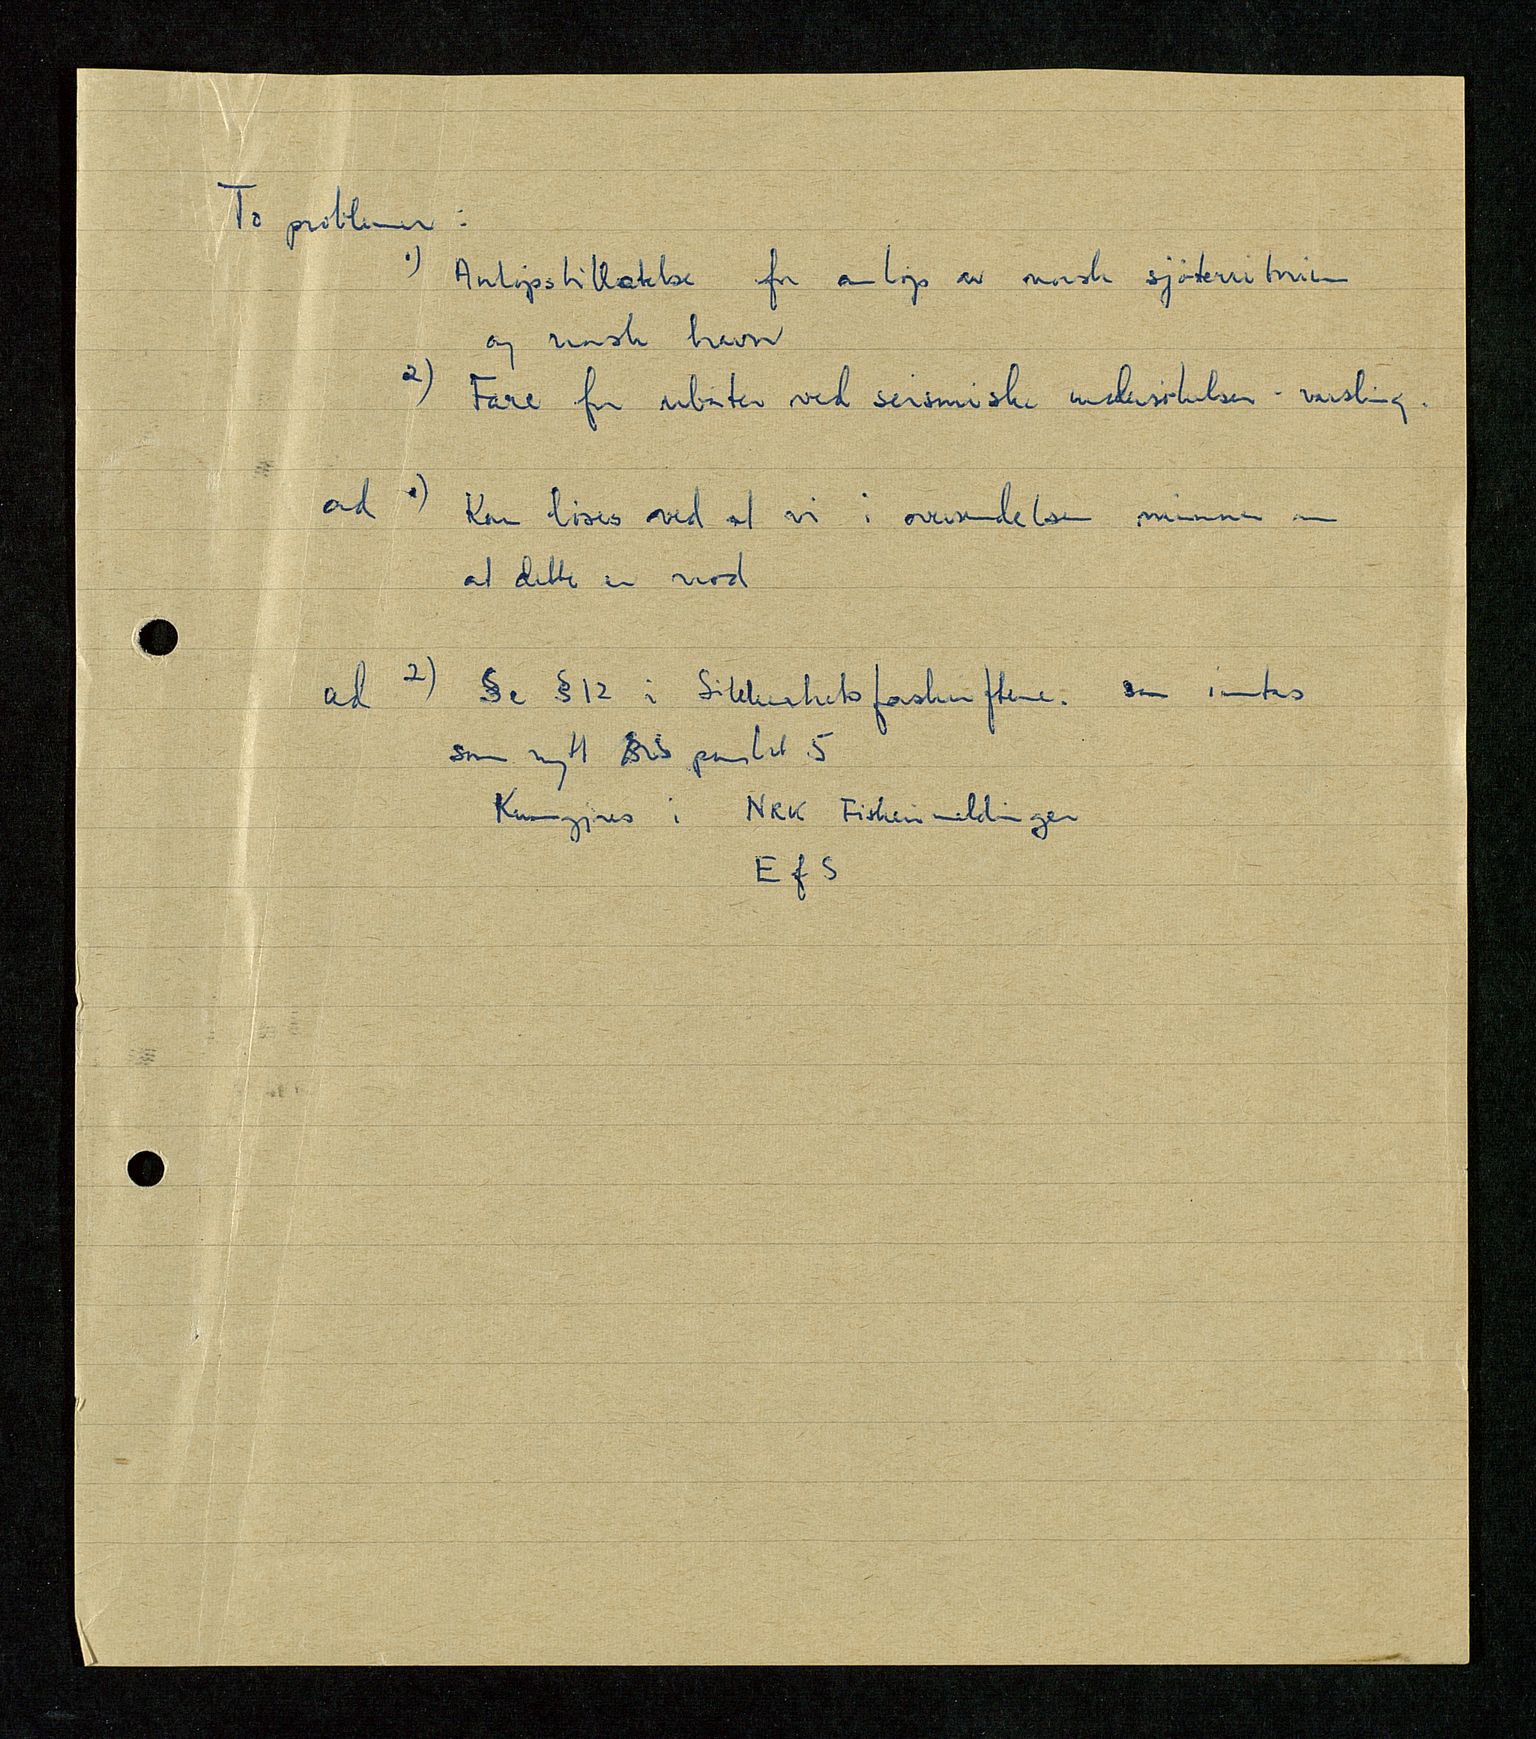 To problemer :
1) Anløpstillatelse for anløp av norsk sjøterritorium
og norsk havn
2) Fare for ubåter ved seismiske undersøkelser - varsling.
ad 1) Kan løses ved at vi i oversendelsen minner om
at dette er nød
ad 2) Se § 12 i Sikkerhetsforskriftene. som inntas
som nytt punkt 5
Kunngjøres i NRK Fiskerimeldinger
E f S